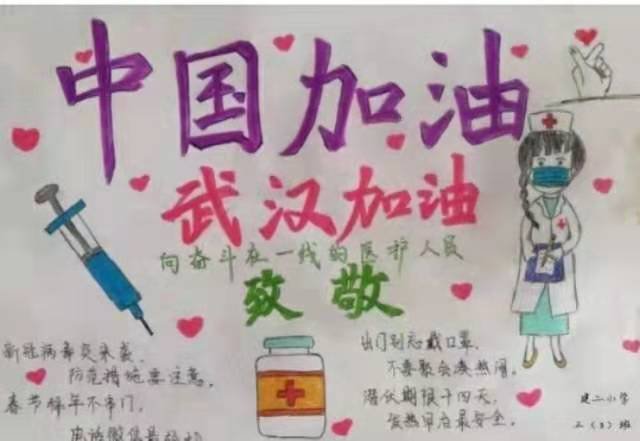 中国加油
武汉加油
向奋斗在一线的医护人员
致敬
新冠病毒突来袭,
防范措施要注意,
春节拜年不串门,
电话微信最
出门别忘戴口罩,
不要聚会凑热闹。
潜伏期限十四天,
发热早治最安全。
建二小学
二(3)班